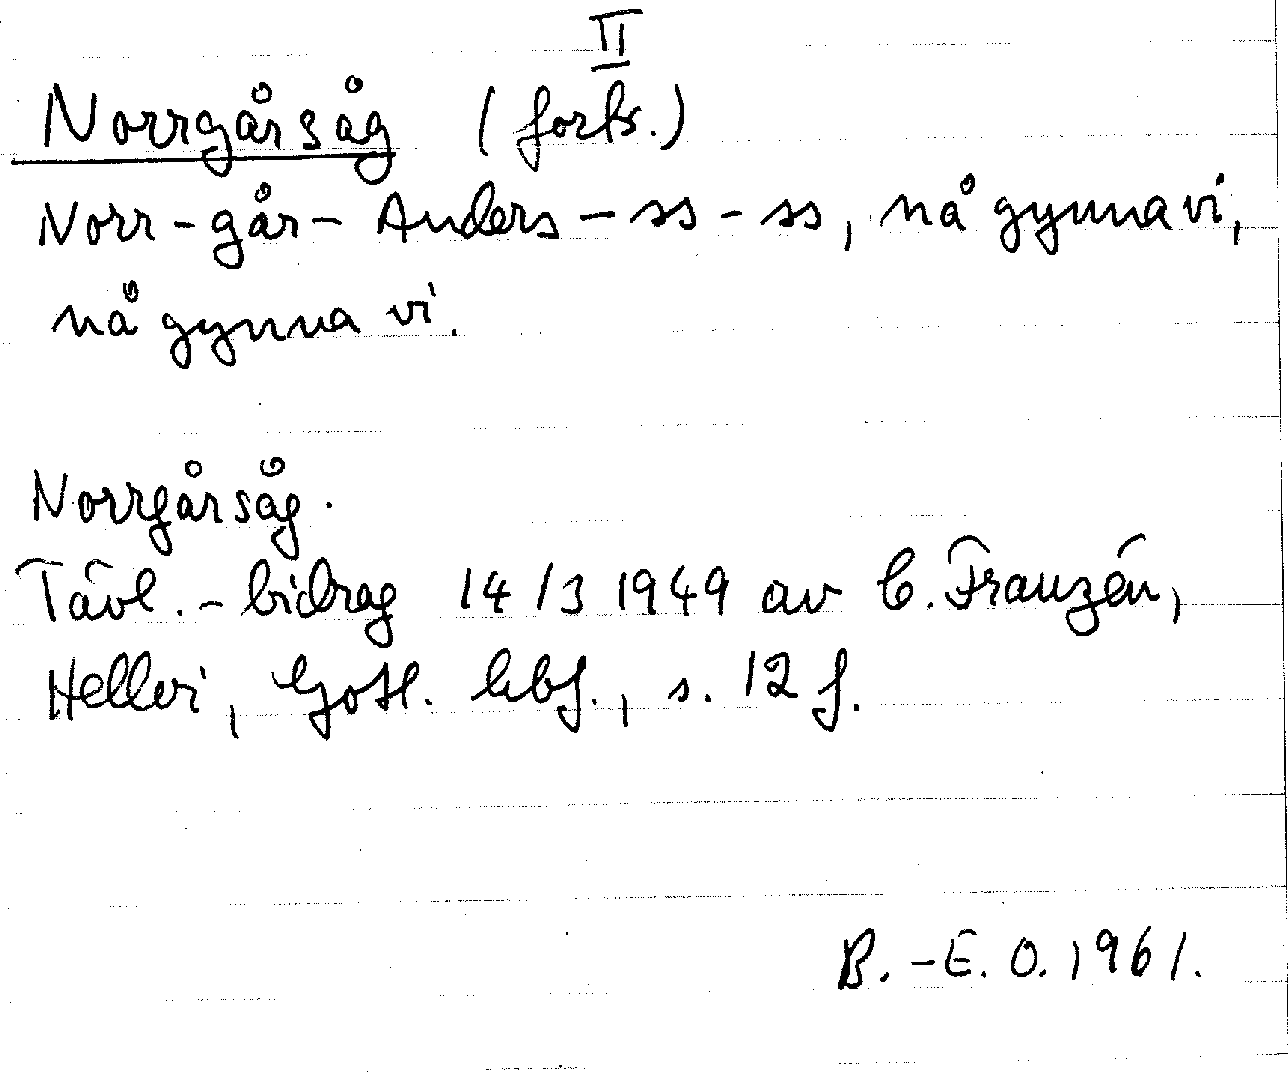 II
Norrgårsåg (forts.)
Norr-går- Anders-ss-ss, nå gynna vi,
nå gynna vi.
Norrgårsåg.
Tävl.-bidrag 14/3 1949 av C. Franzén,
Hellvi, Gotl. lbf., s. 12 f.
B.-E. O. 1961.